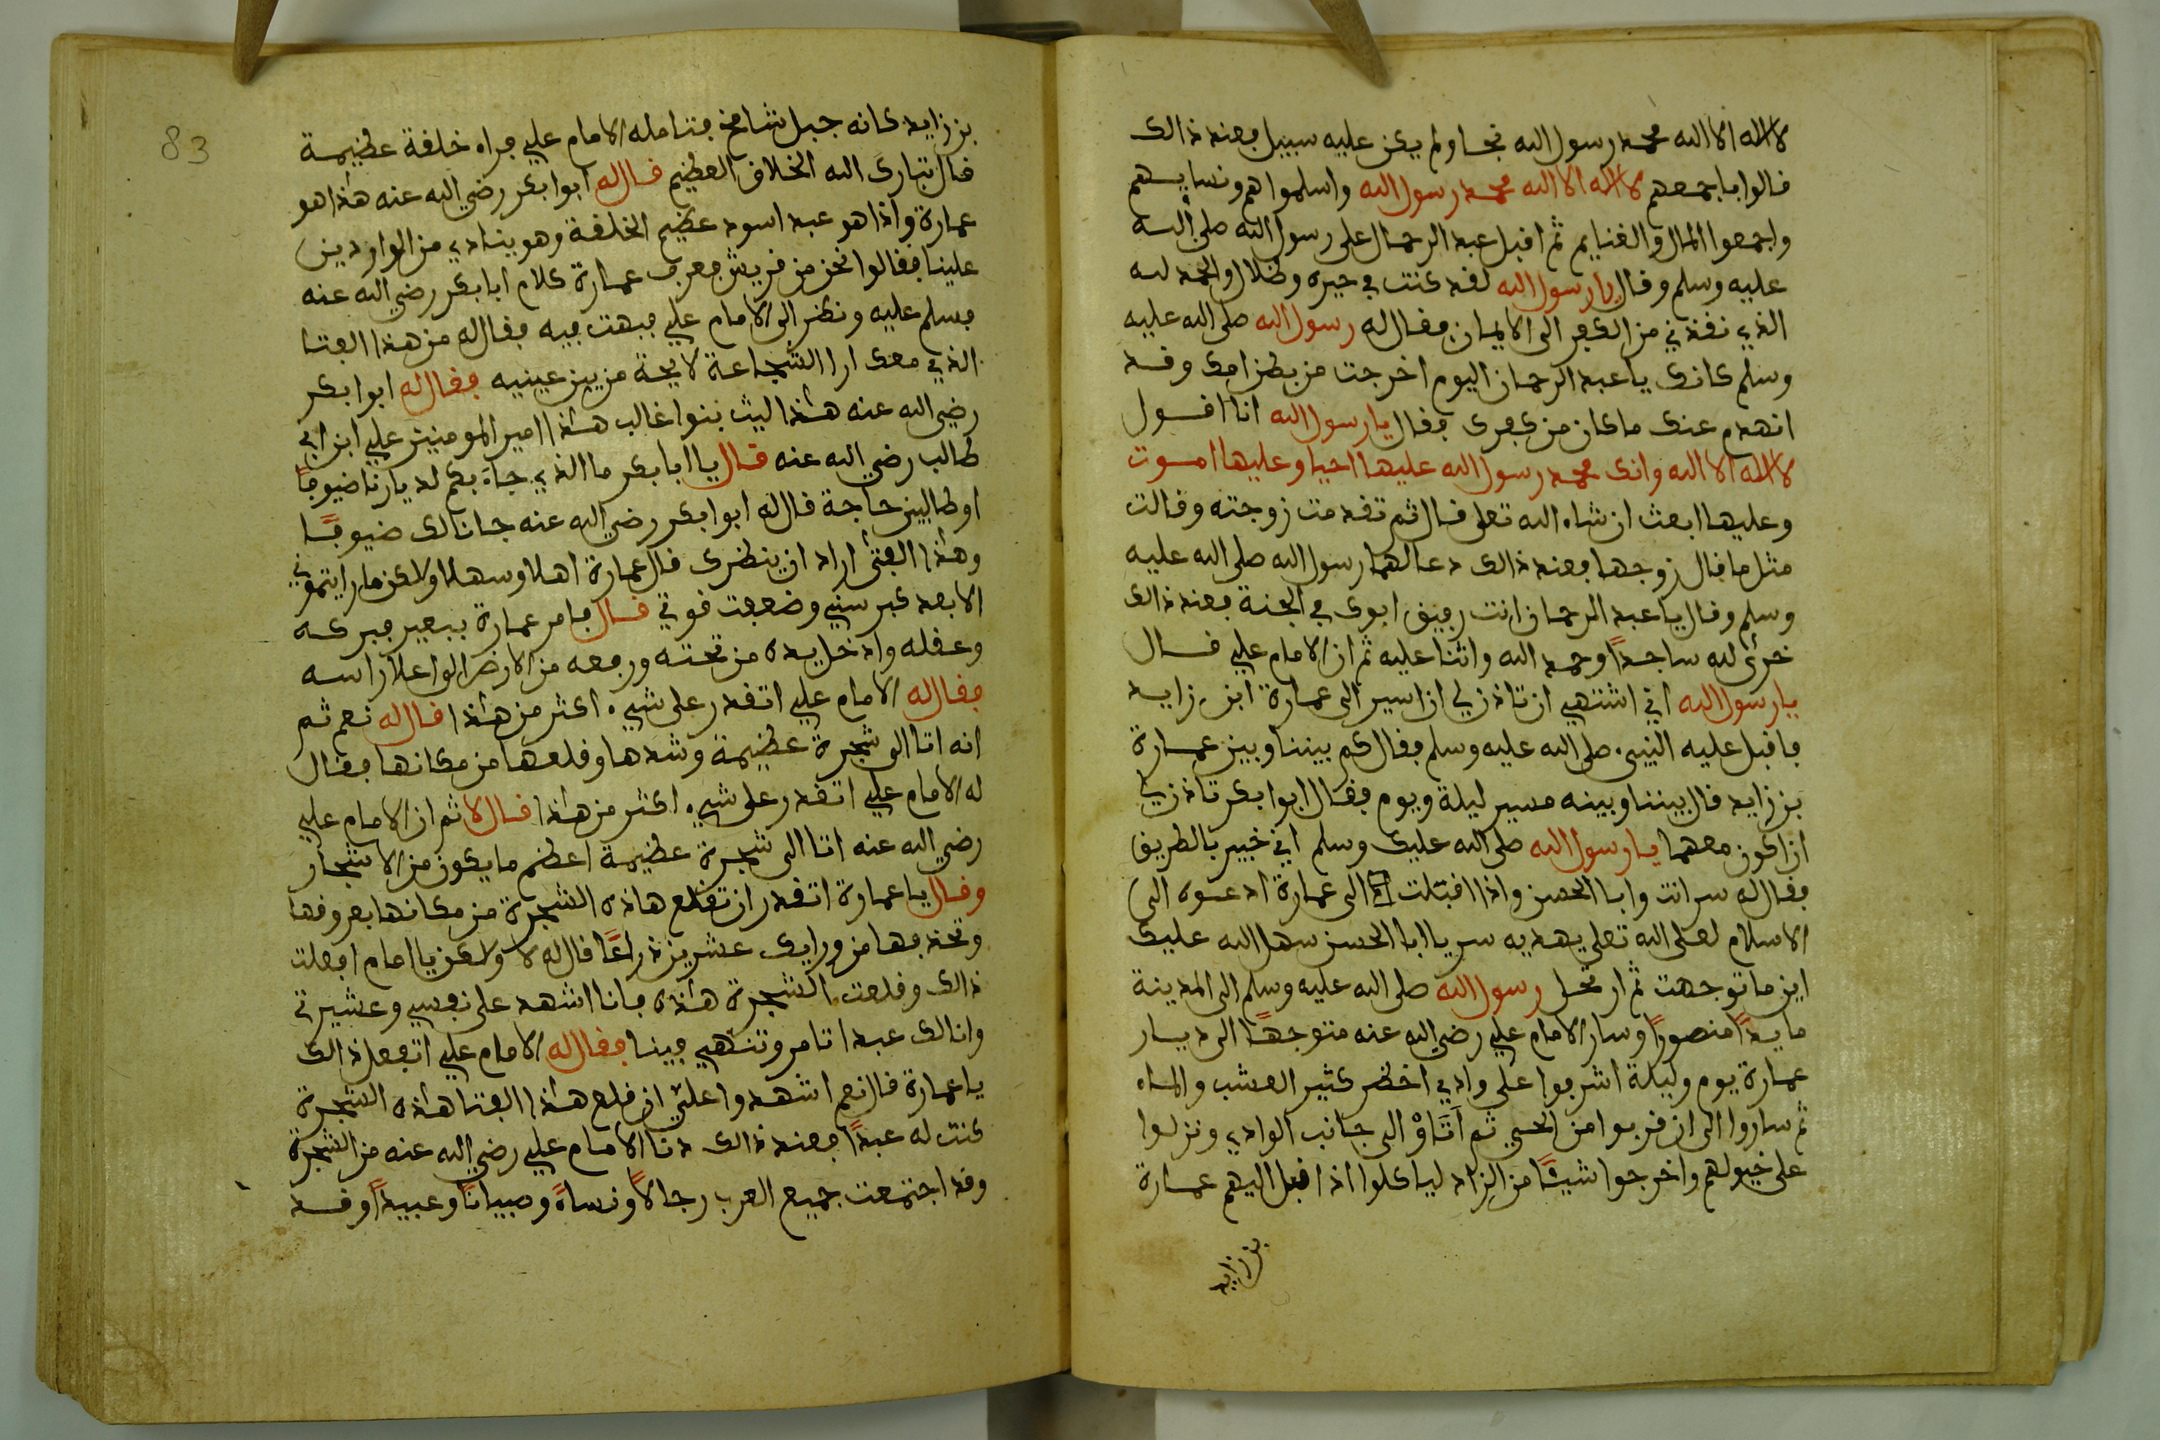 لااله الا الله محمد رسول الله نجا ولم يكن عليه سبيل فعند ذالك
قالوا باجمعهم لااله الا الله محمد رسول الله واسلموا هم ونسايهم
واجمعوا المال والغنايم ثم اقبل عبد الرحمان على رسول الله صلى الله
عليه وسلم وقال يا رسول الله لقد كنت في حيره وظلال والحمد لله
الذي نقذني من الكفر الى الايمان فقال له رسول الله صلى الله عليه
وسلم كانك يا عبد الرحمان اليوم اخرجت من بطن امك وقد
انهدم عنك ماكان من كفرك فقال يا رسول الله انا اقول
لااله الا الله وانك محمد رسول الله عليها احيا وعليها اموت
وعليها ابعث ان شاء الله تعلى قال ثم تقدمت زوجته وقالت
مثل ما قال زوجها فعند ذالك دعا لهما رسول الله صلى الله عليه
وسلم وقال يا عبد الرحمان انت رفيق ابوك في الجنة فعند ذالك
خر لله ساجدًا وحمد الله واثنا عليه ثم ان الامام علي قال
يا رسول الله اني اشتهي ان تاذن لي ان اسير الى عمارة ابن زايد
فاقبل عليه النبيء صلى الله عليه وسلم فقال كم بيننا وبين عمارة
بن زايد قال بيننا وبينه مسير ليلة ويوم فقال ابوا بكر تاذن لي
ان اكون معهما يا رسول الله صلى الله عليك وسلم اني خبير بالطريق
فقال له سر انت وابا الحسن واذا اقبلت الى عمارة ادعوه الى
الاسلام لعل الله تعلى يهديه سر يا ابا الحسن سهل الله عليك
اين ما توجهت ثم ارتحل رسول الله صلى الله عليه وسلم الى المدينة
مايدًا منصورًا وسار الامام علي رضي الله عنه متوجهًا الى ديار
عمارة يوم وليلة اشرفوا على وادي اخظر كثير العشب والماء
ثم ساروا الى ان قربوا من الحي ثم اَتَاوْ الى جانب الوادي ونزلوا
على خيولهم واخرجوا شيئًا من الزاد لياكلوا اذا اقبل اليهم عمارة
بن زايد
83
بن زايد كانه جبل شامخ فتامله الامام علي فراه خلقة عظيمة
قال تبارك الله الخلاق العظيم قال له ابوا بكر رضي الله عنه هذا هو
عمارة واذا هو عبد اسود عظيم الخلقة وهو ينادي من الواردين
علينا فقالوا نحن من قريش فعرف عمارة كلام ابا بكر رضي الله عنه
فسلم عليه ونظر الى الامام علي فبهت فيه فقال له من هذا الفتا
الذي معك ارا الشجاعة لايحة من بين عينيه فقال له ابوا بكر
رضي الله عنه هذا ليث بنوا غالب هذا امير المومنين علي ابن ابي
طالب رضي الله عنه قال يا ابا بكر ما الذي جاء بكم لديارنا ضيوفًا
او طالبين حاجة قال له ابوا بكر رضي الله عنه جانالك ضيوفًا
وهذا الفتى اراد ان ينظرك قال عمارة اهلا وسهلا ولاكن ما رايتموني
الا بعد كبر سني وضعفت قوتي قال فامر عمارة ببعير فبركه
وعقله وادخل يده من تحته ورفعه من الارض الى اعلا راسه
فقال له الامام علي اتقدر على شيء اكثر من هذا قال له نعم ثم
انه اتا الى شجرة عظيمة وشدها وقلعها من مكانها فقال
له الامام علي اتقدر على شيء اكثر من هذا قال لا ثم ان الامام علي
رضي الله عنه اتا الى شجرة عظيمة اعظم ما يكون من الاشجار
وقال يا عمارة اتقدر ان تقلع هاذه الشجرة من مكانها بعروقها
وتحذفها من ورايك عشرين ذراعًا قال له لا ولاكن يا امام افعلت
ذالك وقلعت الشجرة هذه فانا اشهد على نفسي وعشيرتي
وانالك عبد اتامر وتنهي فينا فقال له الامام علي اتفعل ذالك
يا عمارة قال نعم اشهدوا علي ان قلع هذا الفتا هاذه الشجرة
كنت له عبدًا فعند ذالك دنا الامام علي رضي الله عنه من الشجرة
وقد اجتمعت جميع العرب رجالًا ونساءً وصبيانًا وعبيدًا وقد